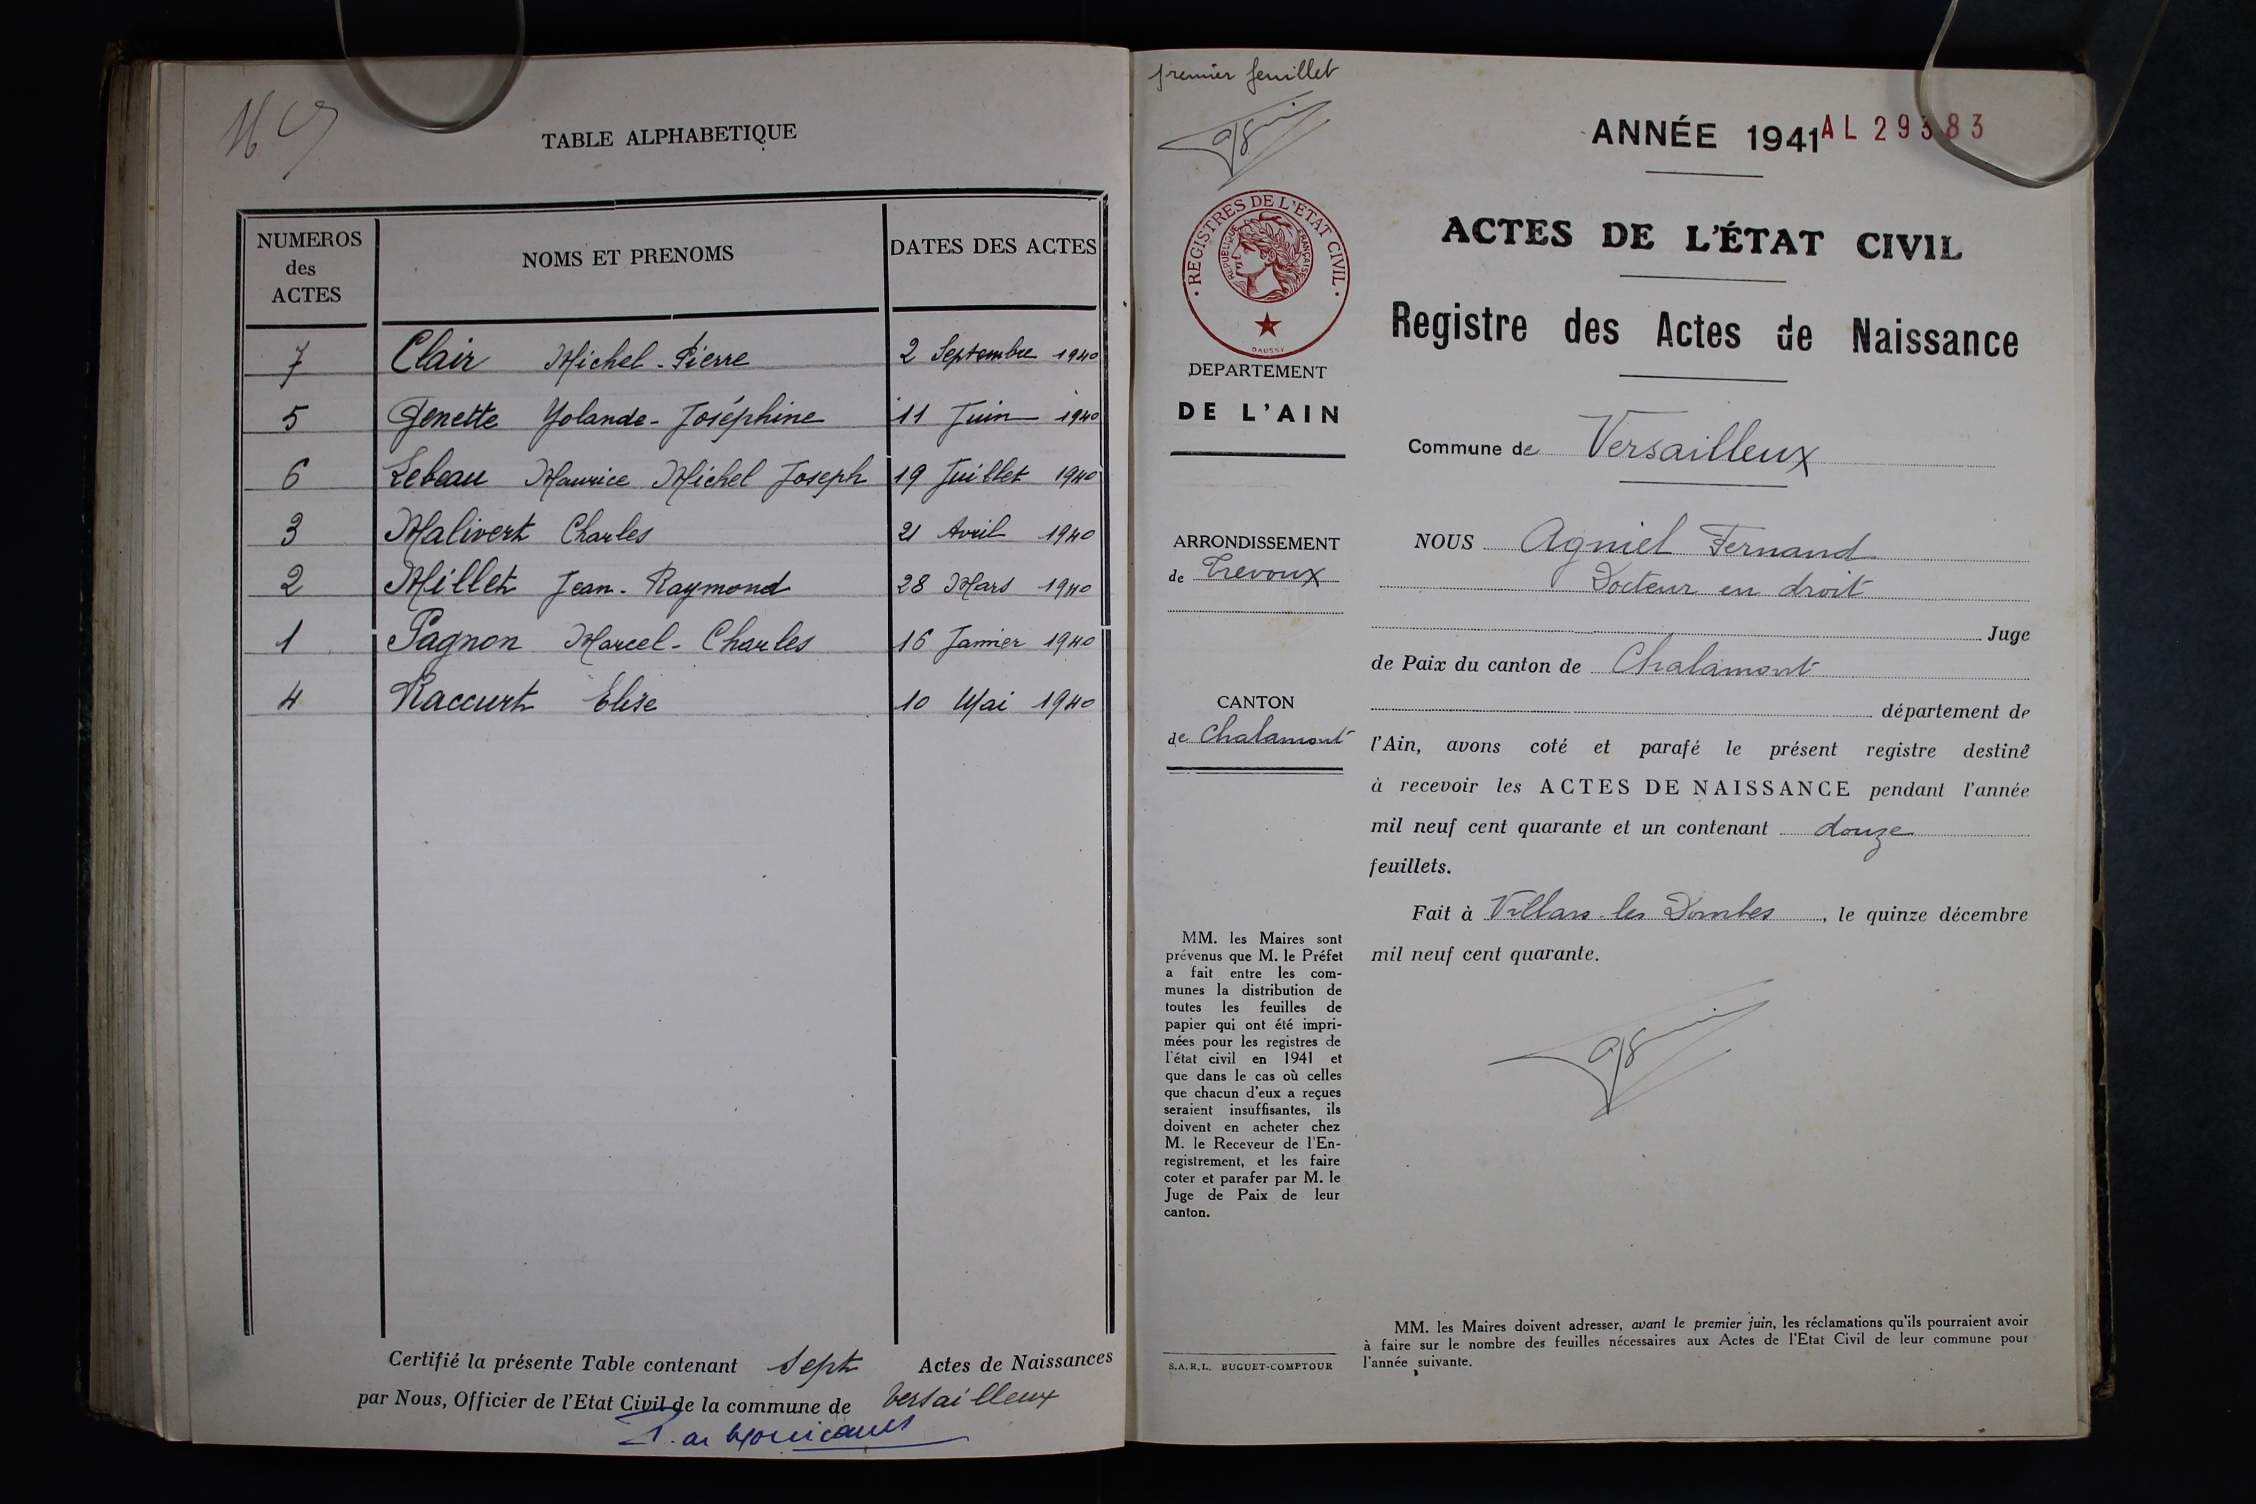 TABLE ALPHABETIQUE
NUMEROS
des
ACTES
NOMS ET PRENOMS
DATES DES ACTES
7 Clair Michel-Pierre 2 Septembre 1940
5 Genette Yolande-Joséphine 11 Juin 1940
6 Lebeau Maurice Michel Joseph 19 Juillet 1940
3 Malivert Charles 21 Avril 1940
2 Millet Jean-Raymond 28 Mars 1940
1 Pagnon Marcel-Charles 16 Janvier 1940
4 Raccurt Elise 10 Mai 1940
Certifié la présente Table contenant Sept Actes de Naissances
par Nous, Officier de l'Etat Civil de la commune de Versailleux
premier feuillet
ANNÉE 1941
AL 29383
REGISTRES DE L'ÉTAT CIVIL
REPUBLIQUE FRANÇAISE
DAUSSY
ACTES DE L'ÉTAT CIVIL
Registre des Actes de Naissance
DEPARTEMENT
DE L'AIN
Commune de Versailleux
ARRONDISSEMENT
de Trevoux
CANTON
de Chalamont
NOUS Agniel Fernand
Docteur en droit
Juge
de Paix du canton de Chalamont
département de
l'Ain, avons coté et parafé le présent registre destiné
à recevoir les ACTES DE NAISSANCE pendant l'année
mil neuf cent quarante et un contenant douze
feuillets.
Fait à Villars les Dombes, le quinze décembre
mil neuf cent quarante.
MM. les Maires sont
prévenus que M. le Préfet
a fait entre les com-
munes la distribution de
toutes les feuilles de
papier qui ont été impri-
mées pour les registres de
l'état civil en 1941 et
que dans le cas où celles
que chacun d'eux a reçues
seraient insuffisantes, ils
doivent en acheter chez
M. le Receveur de l'En-
registrement, et les faire
coter et parafer par M. le
Juge de Paix de leur
canton.
S.A.R.L. BUGUET-COMPTOUR
MM. les Maires doivent adresser, avant le premier juin, les réclamations qu'ils pourraient avoir
à faire sur le nombre des feuilles nécessaires aux Actes de l'Etat Civil de leur commune pour
l'année suivante.